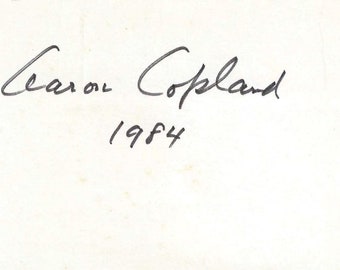 Aaron Copland
1984